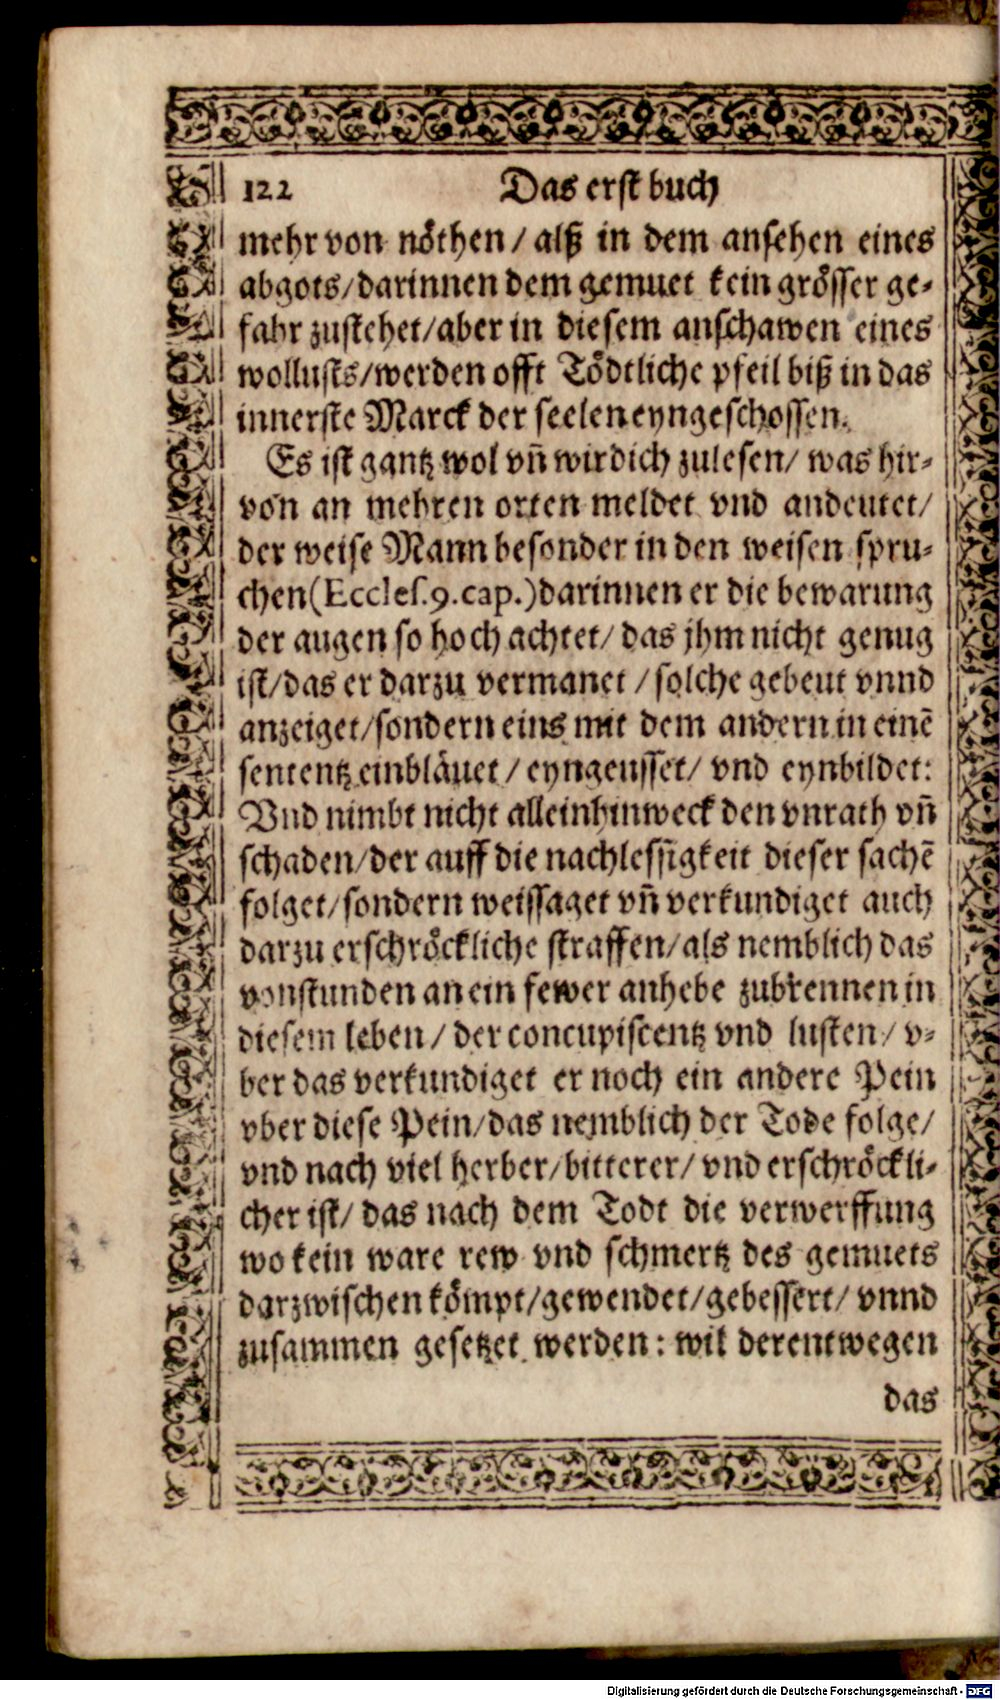 122 Das erst buch
mehr von nöthen / alß in dem ansehen eines
abgots/darinnen dem gemuet kein grösser ge-
fahr zustehet/aber in diesem anschawen eines
wollusts/werden offt Tödtliche pfeil biß in das
innerste Marck der seelen eyngeschossen.
Es ist gantz wol vn̄ wirdich zulesen/ was hir-
von an mehren orten meldet vnd andeutet/
der weise Mann besonder in den weisen spru-
chen(Eccles.9.cap.)darinnen er die bewarung
der augen so hoch achtet/ das jhm nicht genug
ist/das er darzu vermanet / solche gebeut vnnd
anzeiget/sondern eins mit dem andern in einē
sententz einbläuet / eyngeusset/ vnd eynbildet:
Vnd nimbt nicht allein hinweck den vnrath vn̄
schaden/der auff die nachlessigkeit dieser sachē
folget/sondern weissaget vn̄ verkundiget auch
darzu erschröckliche straffen/als nemblich das
vonstunden an ein fewer anhebe zubrennen in
diesem leben/ der concupiscentz vnd lusten/ v-
ber das verkundiget er noch ein andere Pein
vber diese Pein/das nemblich der Tode folge/
vnd nach viel herber/bitterer/ vnd erschröckli-
cher ist/ das nach dem Todt die verwerffung
wo kein ware rew vnd schmertz des gemuets
darzwischen kömpt/gewendet/gebessert/ vnnd
zusammen gesetzet werden: wil derentwegen
das
Digitalisierung gefördert durch die Deutsche Forschungsgemeinschaft - DFG